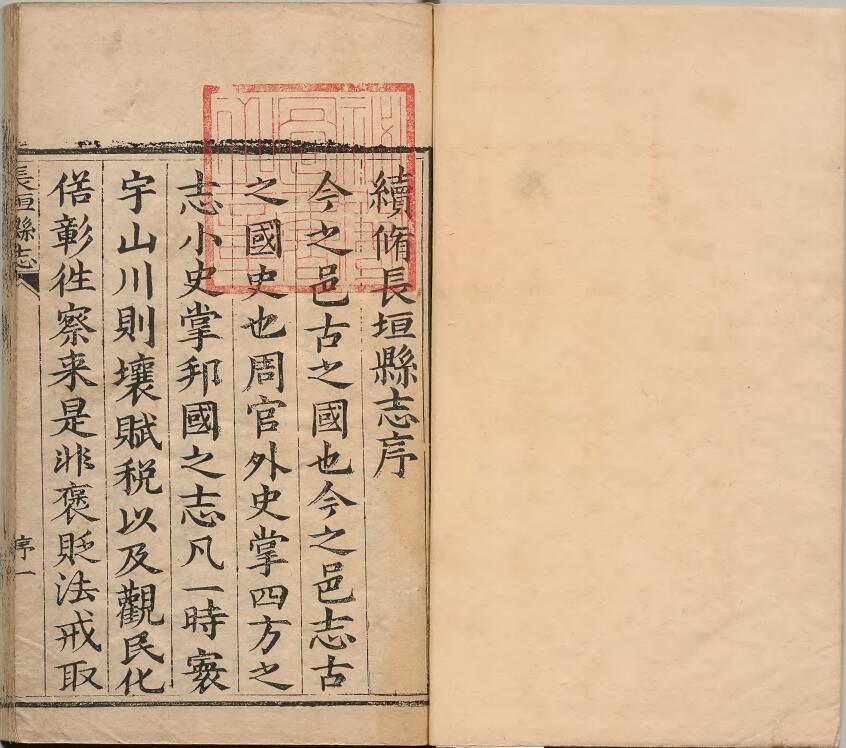 續脩長垣縣志序
今之邑古之國也今之邑志古
之國史也周官外史掌四方之
志小史掌邦國之志凡一時寰
宇山川則壤賦稅以及觀民化
俗彰徃察来是非褒貶法戒取
長垣縣志
序一